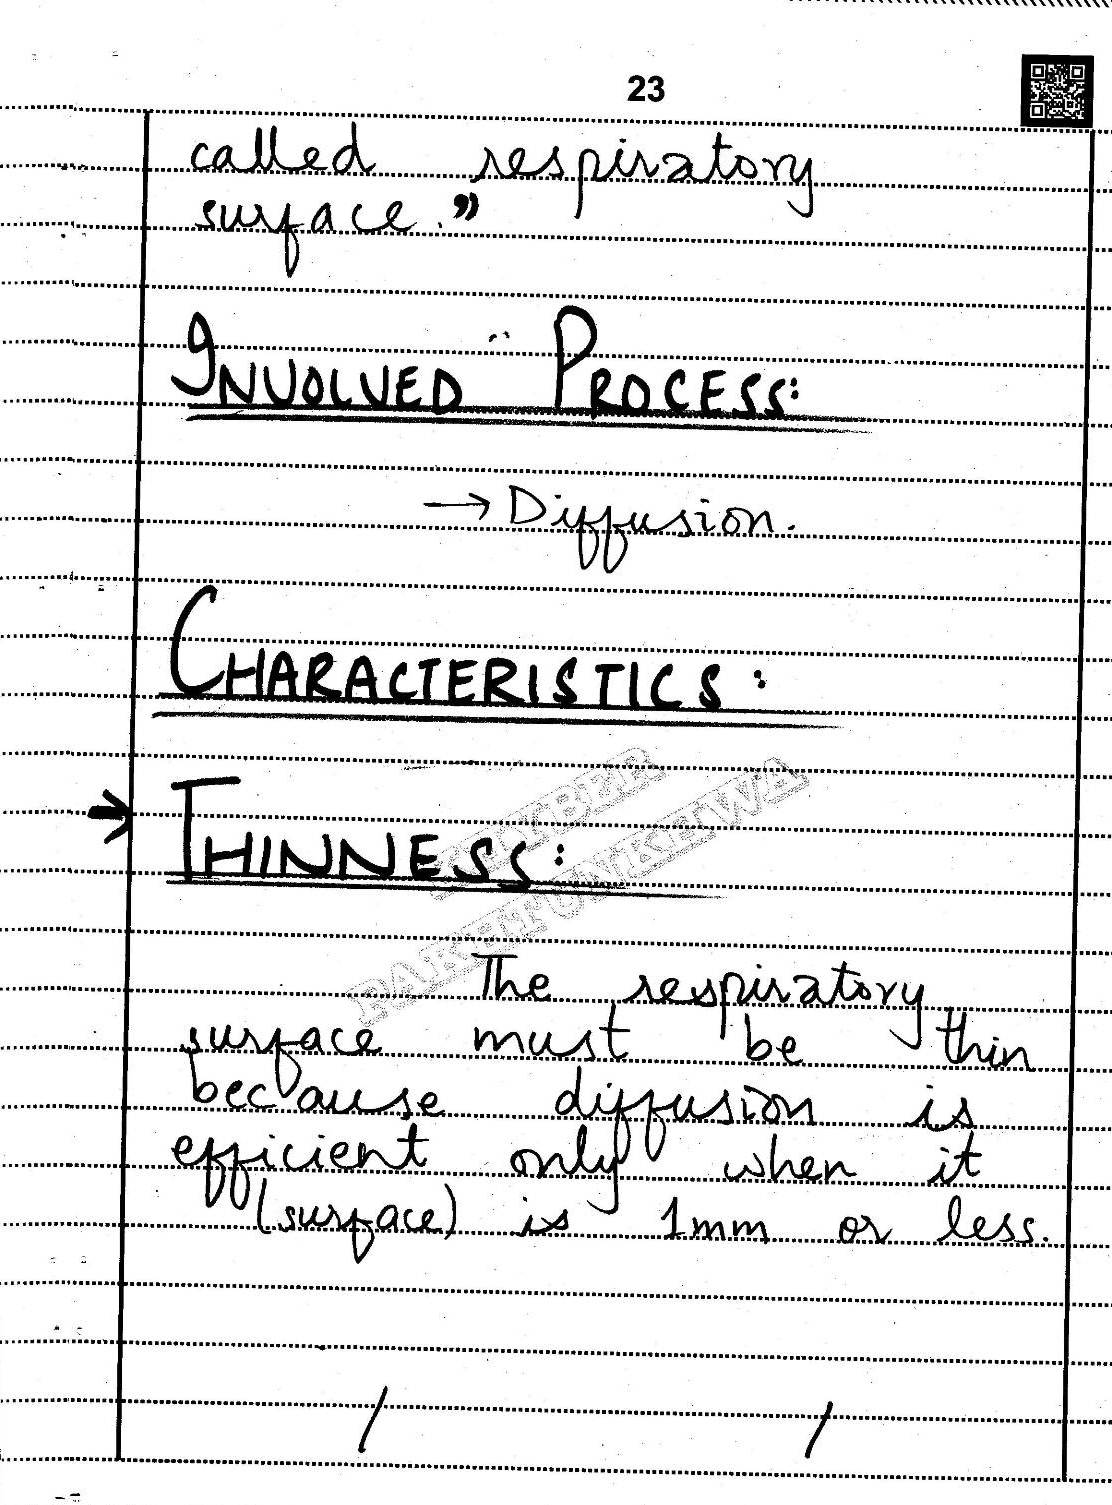 23
called respiratory
surface.”
INVOLVED PROCESS:
→ Diffusion.
CHARACTERISTICS:
→ THINNESS:
KHYBER
PAKHTUNKHWA
The respiratory
surface must be thin
because diffusion is
efficient only when it
(surface) is 1mm or less.